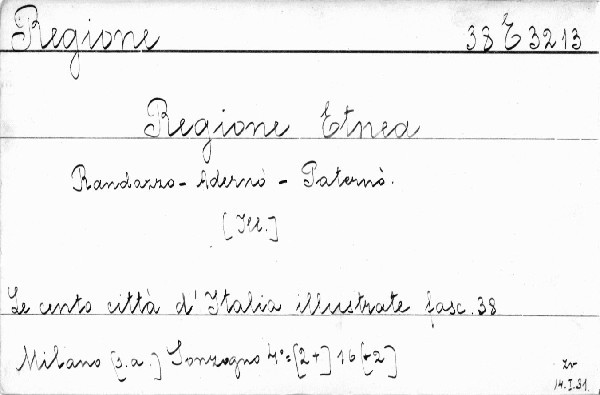 Regione 38 E 3213
Regione Etnea
Randazzo - Adernò - Paternò.
[Ill.]
Le cento città d'Italia illustrate fasc. 38
Milano [s.a.] Sonzogno 4°=[2+] 16 [+2]
zv
14.I.31.